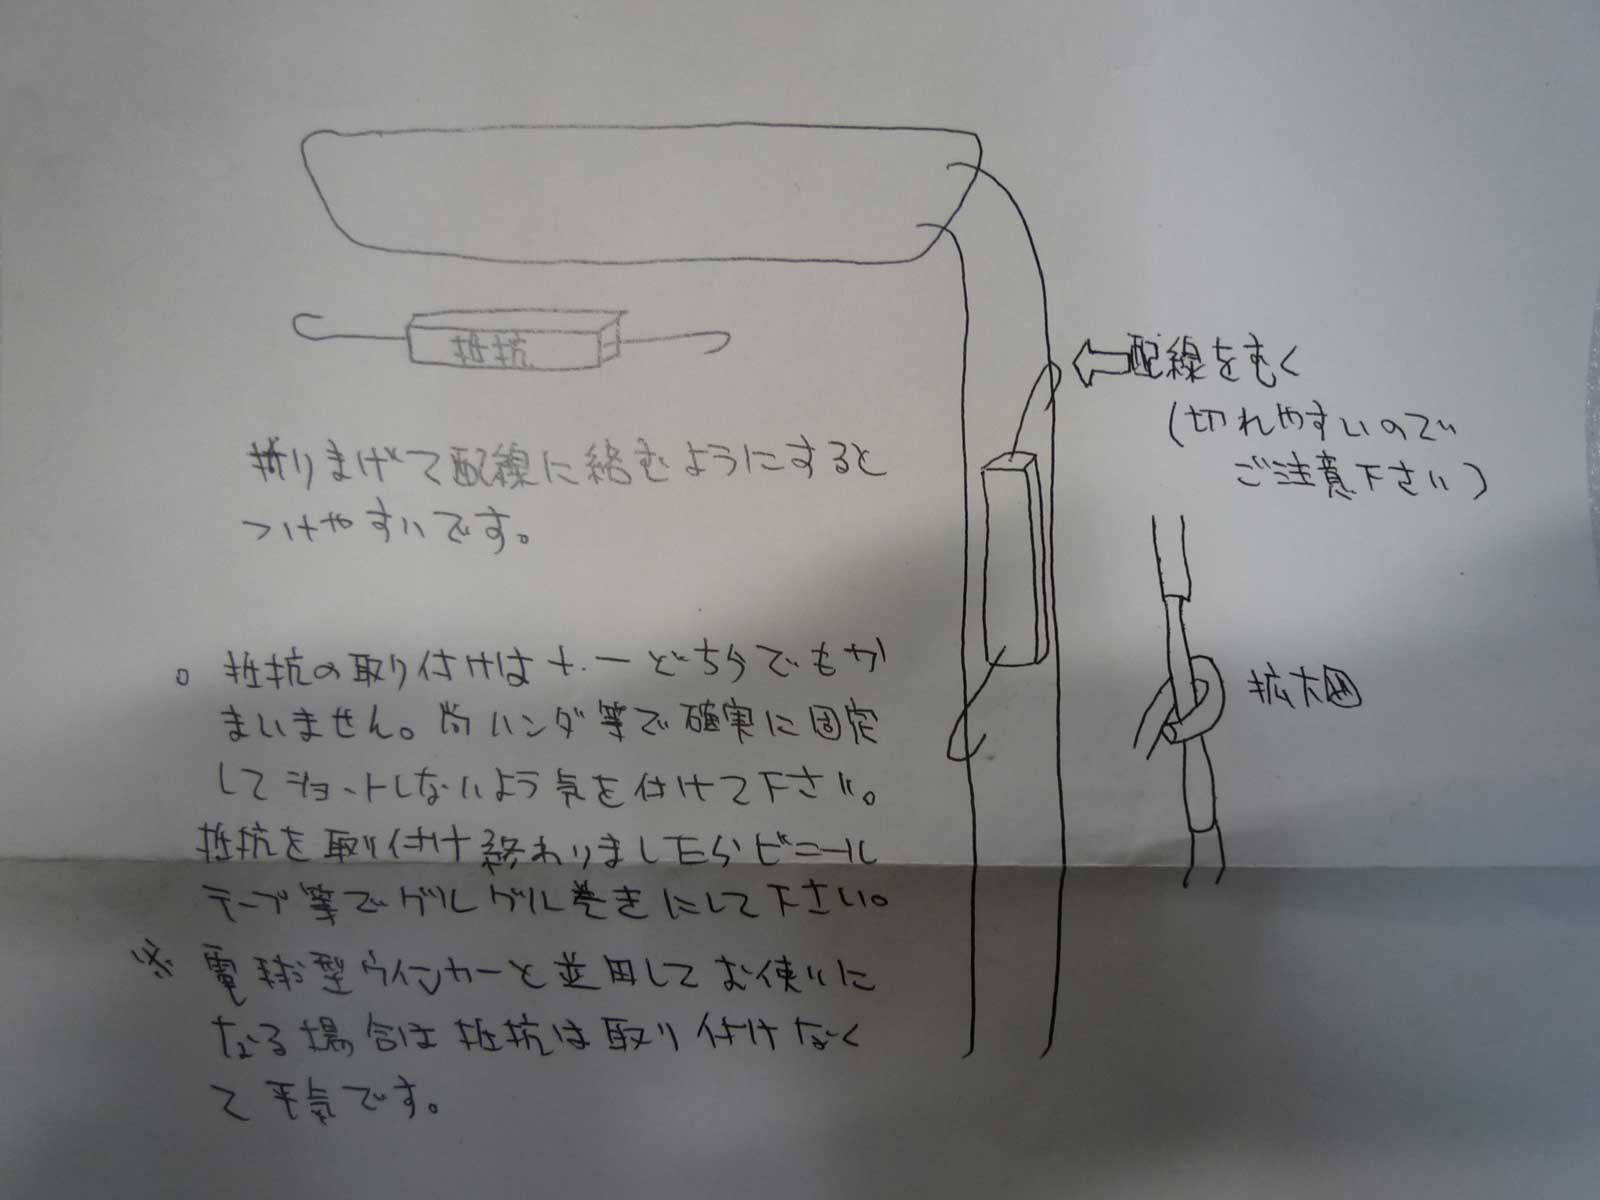 抵抗
配線をむく
(切れやすいので
ご注意下さい)
折りまげて配線に絡むようにすると
つけやすいです。
拡大図
。抵抗の取り付けは+・ーどちらでもか
まいません。尚ハンダ等で確実に固定
してショートしないよう気を付けて下さい。
抵抗を取り付け終わりましたらビニール
テープ等でグルグル巻きにして下さい。
※電球型ウインカーと並用してお使いに
なる場合は抵抗は取り付けなく
て平気です。